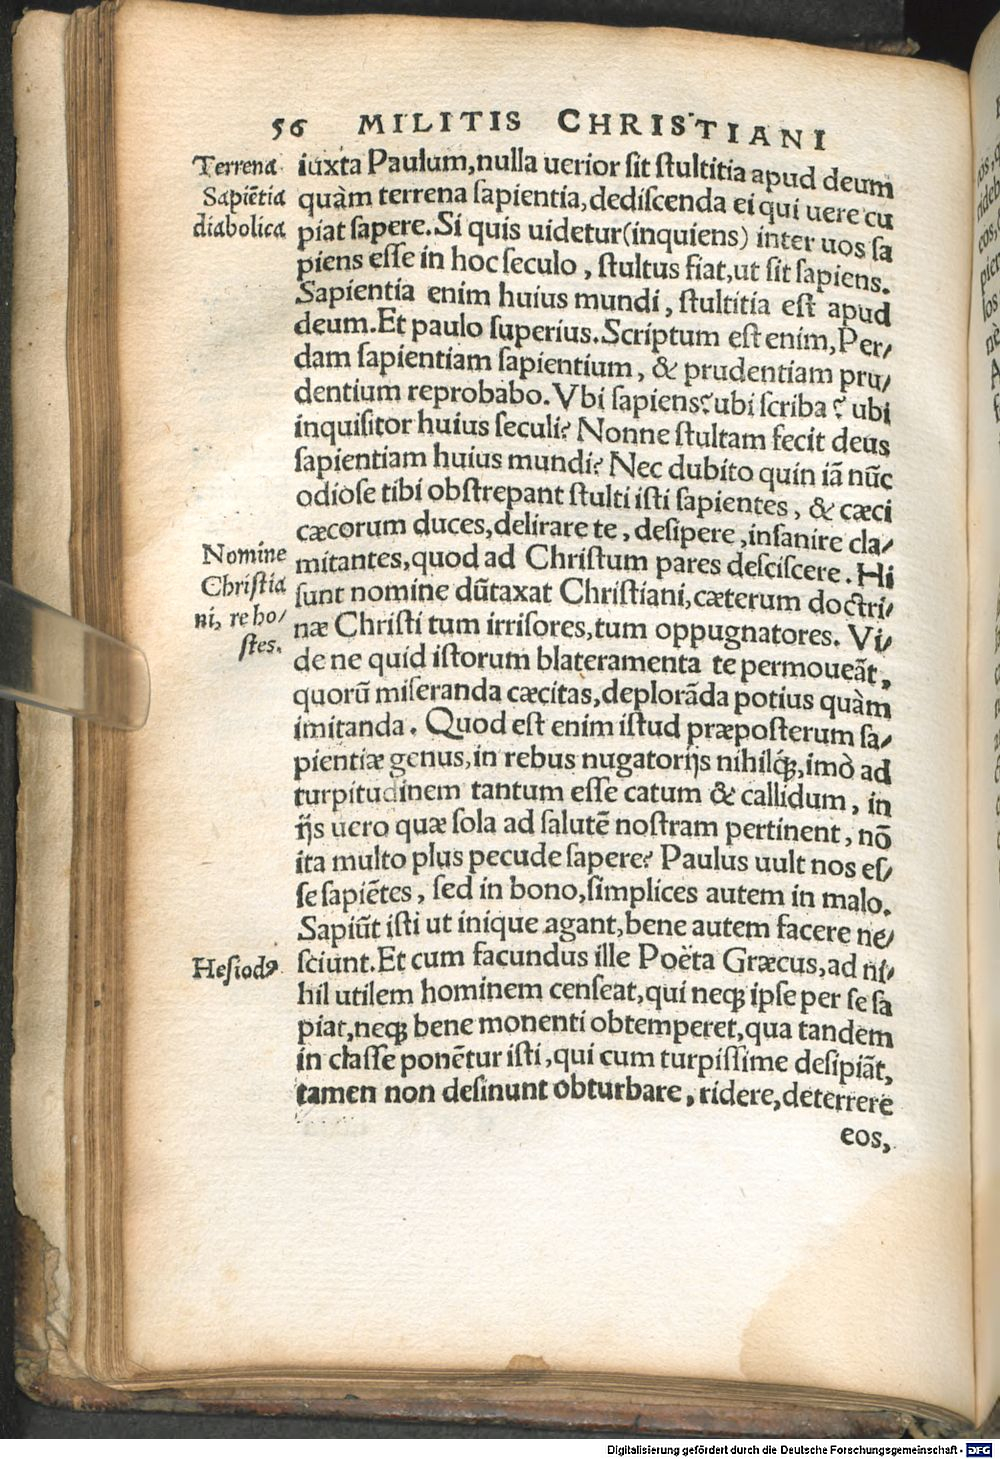 56 MILITIS CHRISTIANI
Terrena
Sapiẽtia
diabolica
iuxta Paulum, nulla uerior sit stultitia apud deum
quàm terrena sapientia, dediscenda ei qui uere cu
piat sapere. Si quis uidetur (inquiens) inter uos sa
piens esse in hoc seculo, stultus fiat, ut sit sapiens.
Sapientia enim huius mundi, stultitia est apud
deum. Et paulo superius. Scriptum est enim, Per/
dam sapientiam sapientium, & prudentiam pru/
dentium reprobabo. Vbi sapiens? ubi scriba? ubi
inquisitor huius seculi? Nonne stultam fecit deus
sapientiam huius mundi? Nec dubito quin iã nũc
odiose tibi obstrepant stulti isti sapientes, & cæci
cæcorum duces, delirare te, desipere, insanire cla/
Nomine
Christia
ni, re ho/
stes.
mitantes, quod ad Christum pares desciscere. Hi
sunt nomine dũtaxat Christiani, cæterum doctri/
næ Christi tum irrisores, tum oppugnatores. Vi/
de ne quid istorum blateramenta te permoueãt,
quorũ miseranda cæcitas, deplorãda potius quàm
imitanda. Quod est enim istud præposterum sa/
pientiæ genus, in rebus nugatorijs nihilq́;, imò ad
turpitudinem tantum esse catum & callidum, in
ijs uero quæ sola ad salutẽ nostram pertinent, nõ
ita multo plus pecude sapere? Paulus uult nos es/
se sapiẽtes, sed in bono, simplices autem in malo.
Sapiũt isti ut inique agant, bene autem facere ne/
Hesiodꝰ
sciunt. Et cum facundus ille Poëta Græcus, ad ni/
hil utilem hominem censeat, qui neq; ipse per se sa
piat, neq; bene monenti obtemperet, qua tandem
in classe ponẽtur isti, qui cum turpissime desipiãt,
tamen non desinunt obturbare, ridere, deterrere
eos,
Digitalisierung gefördert durch die Deutsche Forschungsgemeinschaft - DFG